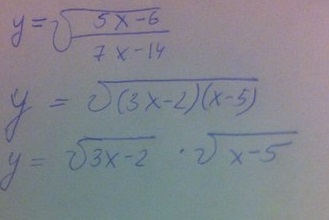 y = √((5x-6)/(7x-14))
y = √((3x-2)(x-5))
y = √(3x-2) · √(x-5)